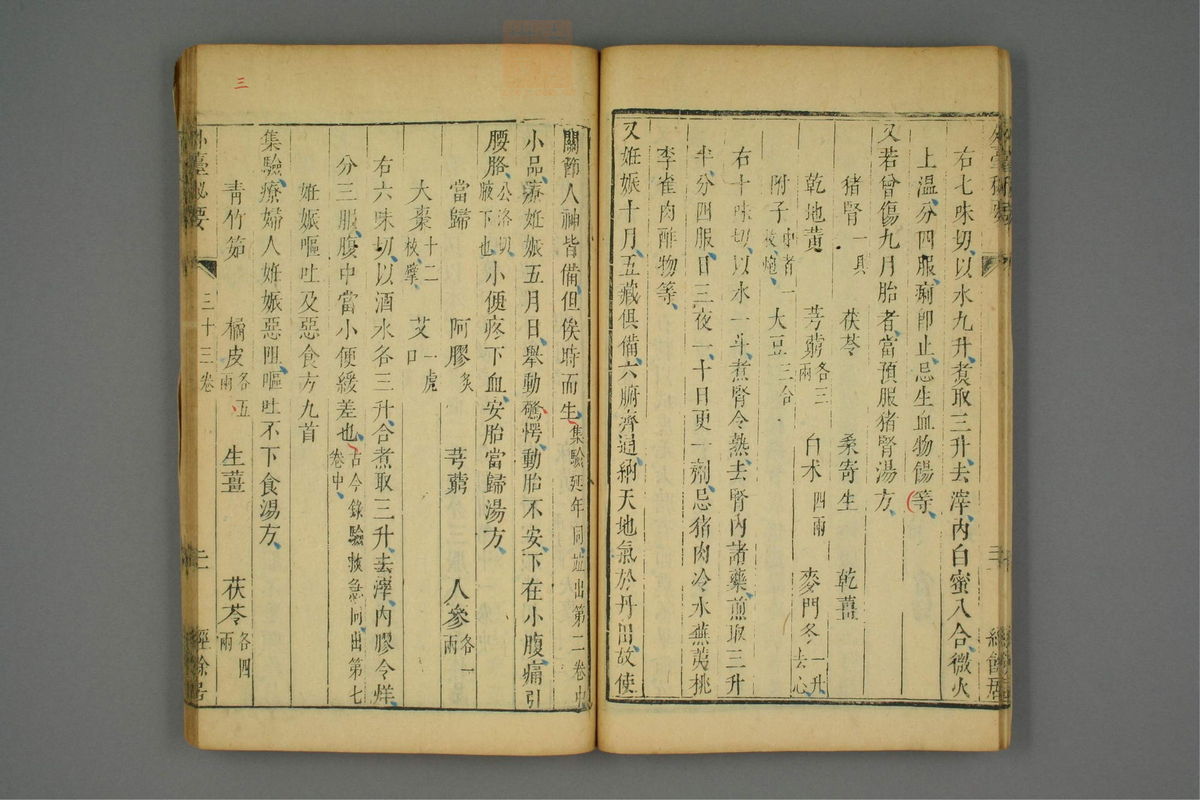 右七味切以水九升煑取三升去滓内白蜜八合微火
上溫分四服痢即止忌生血物餳等
又若曾傷九月胎者當預服猪腎湯方
猪腎一具 茯苓 桑寄生 乾薑
乾地黃 芎藭各三兩 白朮四兩 麥門冬一升去心
附子中者一枚炮 大豆三合
右十味切以水一斗煮腎令熟去腎内諸藥煎取三升
半分四服日三夜一十日更一劑忌猪肉冷水蕪荑桃
李雀肉酢物等
又姙娠十月五藏俱備六腑齊通納天地氣於丹田故使
關節人神皆備但俟時而生集驗延年同並出第二卷中
小品療姙娠五月日舉動驚愕動胎不安下在小腹痛引
腰胳公洛切腋下也小便疼下血安胎當歸湯方
當歸 阿膠炙 芎藭 人參各一兩
大棗十二枚擘 艾一虎口
右六味切以酒水各三升合煮取三升去滓内膠令烊
分三服腹中當小便緩差也古今錄驗救急同出第七卷中
姙娠嘔吐及惡食方九首
集驗療婦人姙娠惡阻嘔吐不下食湯方
青竹筎 橘皮各五兩 生薑 茯苓各四兩
外臺秘要 三十三卷 經餘居
三